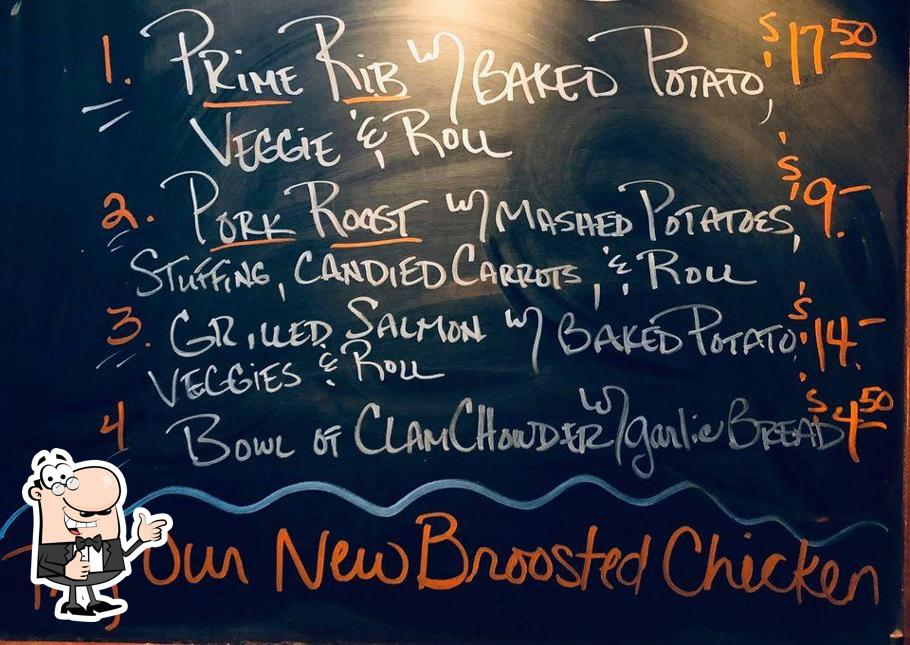 1. PRIME RIB W/ BAKED POTATO, $17.50
VEGGIE & ROLL
2. PORK ROOST W/ MASHED POTATOES, $9.-
STUFFING, CANDIED CARROTS, & ROLL
3. GRILLED SALMON W/ BAKED POTATO, $14.-
VEGGIES & ROLL
4 BOWL OF CLAM CHOWDER W/ garlic BREAD $4.50
Our New Broosted Chicken